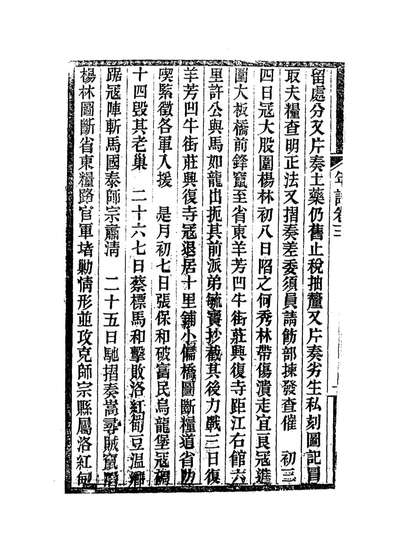 留處分又片奏土藥仍舊止稅抽釐又片奏劣生私刻圖記冒
取夫糧查明正法又摺奏差委須員請飭部揀發查催　初三
四日寇大股圍楊林初八日陷之何秀林帶傷潰走宜良寇進
圍大板橋前鋒竄至省東羊芳凹牛街莊興復寺距江右館六
里許公與馬如龍出扼其前派弟毓寶抄截其後力戰三日復
羊芳凹牛街莊興復寺寇退居十里鋪小偏橋圖斷糧道省防
喫緊徵各軍入援　是月初七日張保和破富民烏龍堡寇碉
十四毀其老巢　二十六七日蔡標馬和擊敗洛紅甸豆溫鄉
踞寇陣斬馬國泰師宗肅清　二十五日馳摺奏嵩尋賊竄踞
楊林圖斷省東糧路官軍堵勦情形並攻克師宗縣屬洛紅甸
年譜卷三